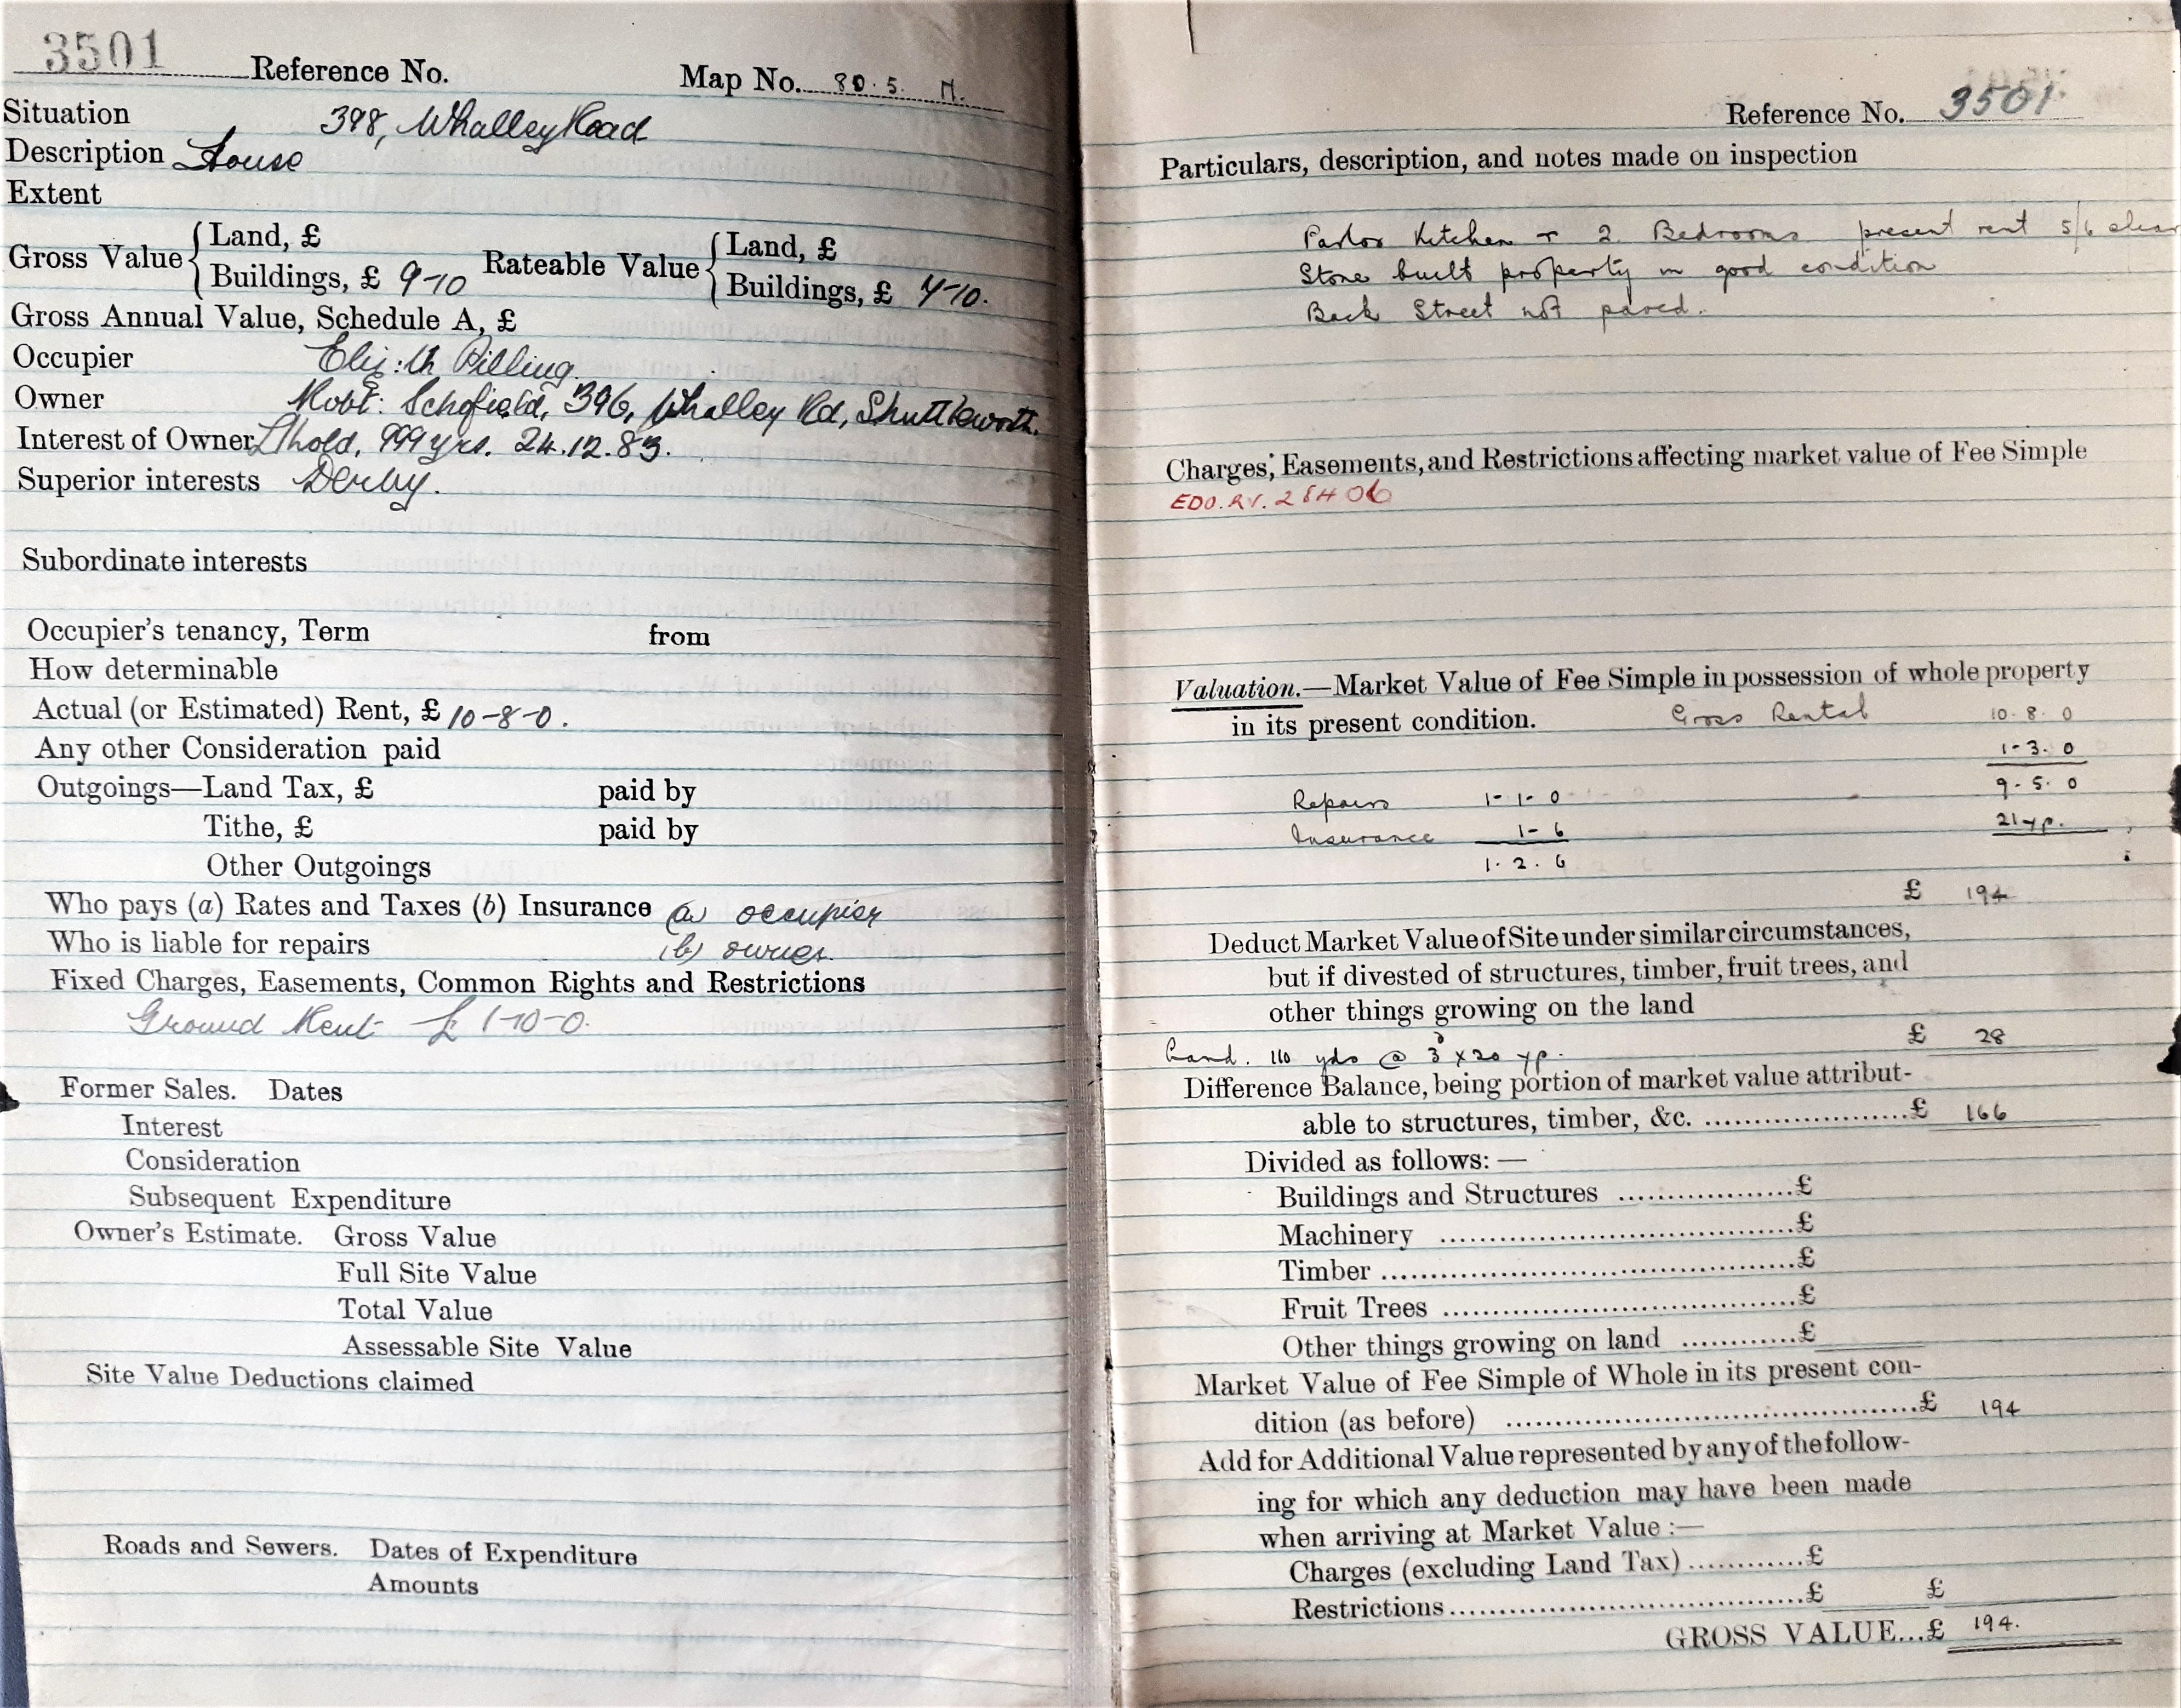 3501 Reference No. Map No. 80.5.
Situation 398, Whalley Road
Description House
Extent
Gross Value { Land, £
Buildings, £ 9-10 Rateable Value { Land, £
Buildings, £ 7-10.
Gross Annual Value, Schedule A, £
Occupier Eliz:th Pilling.
Owner Robt: Schofield, 396, Whalley Rd, Shuttleworth.
Interest of Owner L'hold, 999 yrs. 24.12.83.
Superior interests Derby.
Subordinate interests
Occupier's tenancy, Term from
How determinable
Actual (or Estimated) Rent, £ 10-8-0.
Any other Consideration paid
Outgoings—Land Tax, £ paid by
Tithe, £ paid by
Other Outgoings
Who pays (a) Rates and Taxes (b) Insurance (a) occupier
Who is liable for repairs (b) owner.
Fixed Charges, Easements, Common Rights and Restrictions
Ground Rent £1-10-0.
Former Sales. Dates
Interest
Consideration
Subsequent Expenditure
Owner's Estimate. Gross Value
Full Site Value
Total Value
Assessable Site Value
Site Value Deductions claimed
Roads and Sewers. Dates of Expenditure
Amounts
Reference No. 3501
Particulars, description, and notes made on inspection
Parlor Kitchen + 2 Bedrooms present rent 5/6 clear
Stone built property in good condition
Back Street not paved.
Charges, Easements, and Restrictions affecting market value of Fee Simple
Valuation.—Market Value of Fee Simple in possession of whole property
in its present condition. Gross Rental 10.8.0
1-3.0
Repairs 1-1-0 9.5.0
Insurance 1-6 21 yp.
1.2.6
£ 194
Deduct Market Value of Site under similar circumstances,
but if divested of structures, timber, fruit trees, and
other things growing on the land
Land. 110 yds @ 3d x 20 yp. £ 28
Difference Balance, being portion of market value attribut-
able to structures, timber, &c. ......................£ 166
Divided as follows:—
Buildings and Structures ....................£
Machinery ....................................£
Timber ..........................................£
Fruit Trees ....................................£
Other things growing on land ............£
Market Value of Fee Simple of Whole in its present con-
dition (as before) ..........................................£ 194
Add for Additional Value represented by any of the follow-
ing for which any deduction may have been made
when arriving at Market Value :—
Charges (excluding Land Tax) ............£
Restrictions....................................£ £
GROSS VALUE...£ 194.